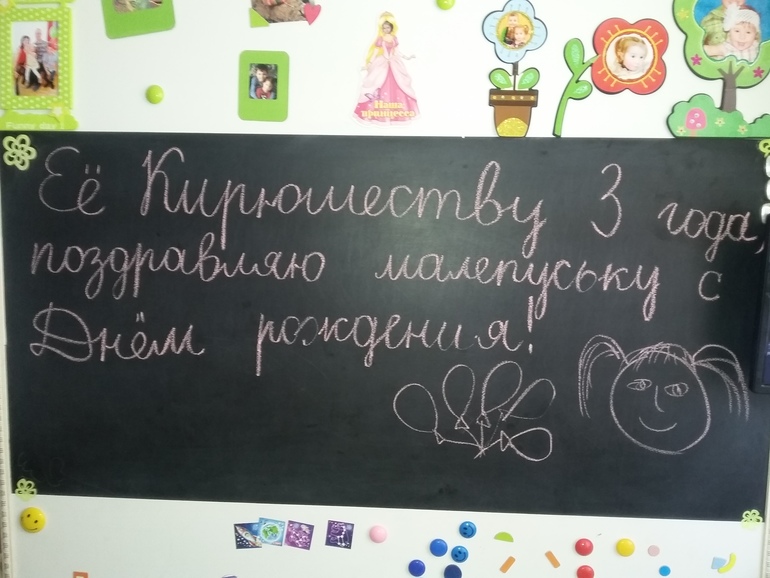 Наша
принцесса
Её Кирюшеству 3 года,
поздравляю малепуську с
Днём рождения!